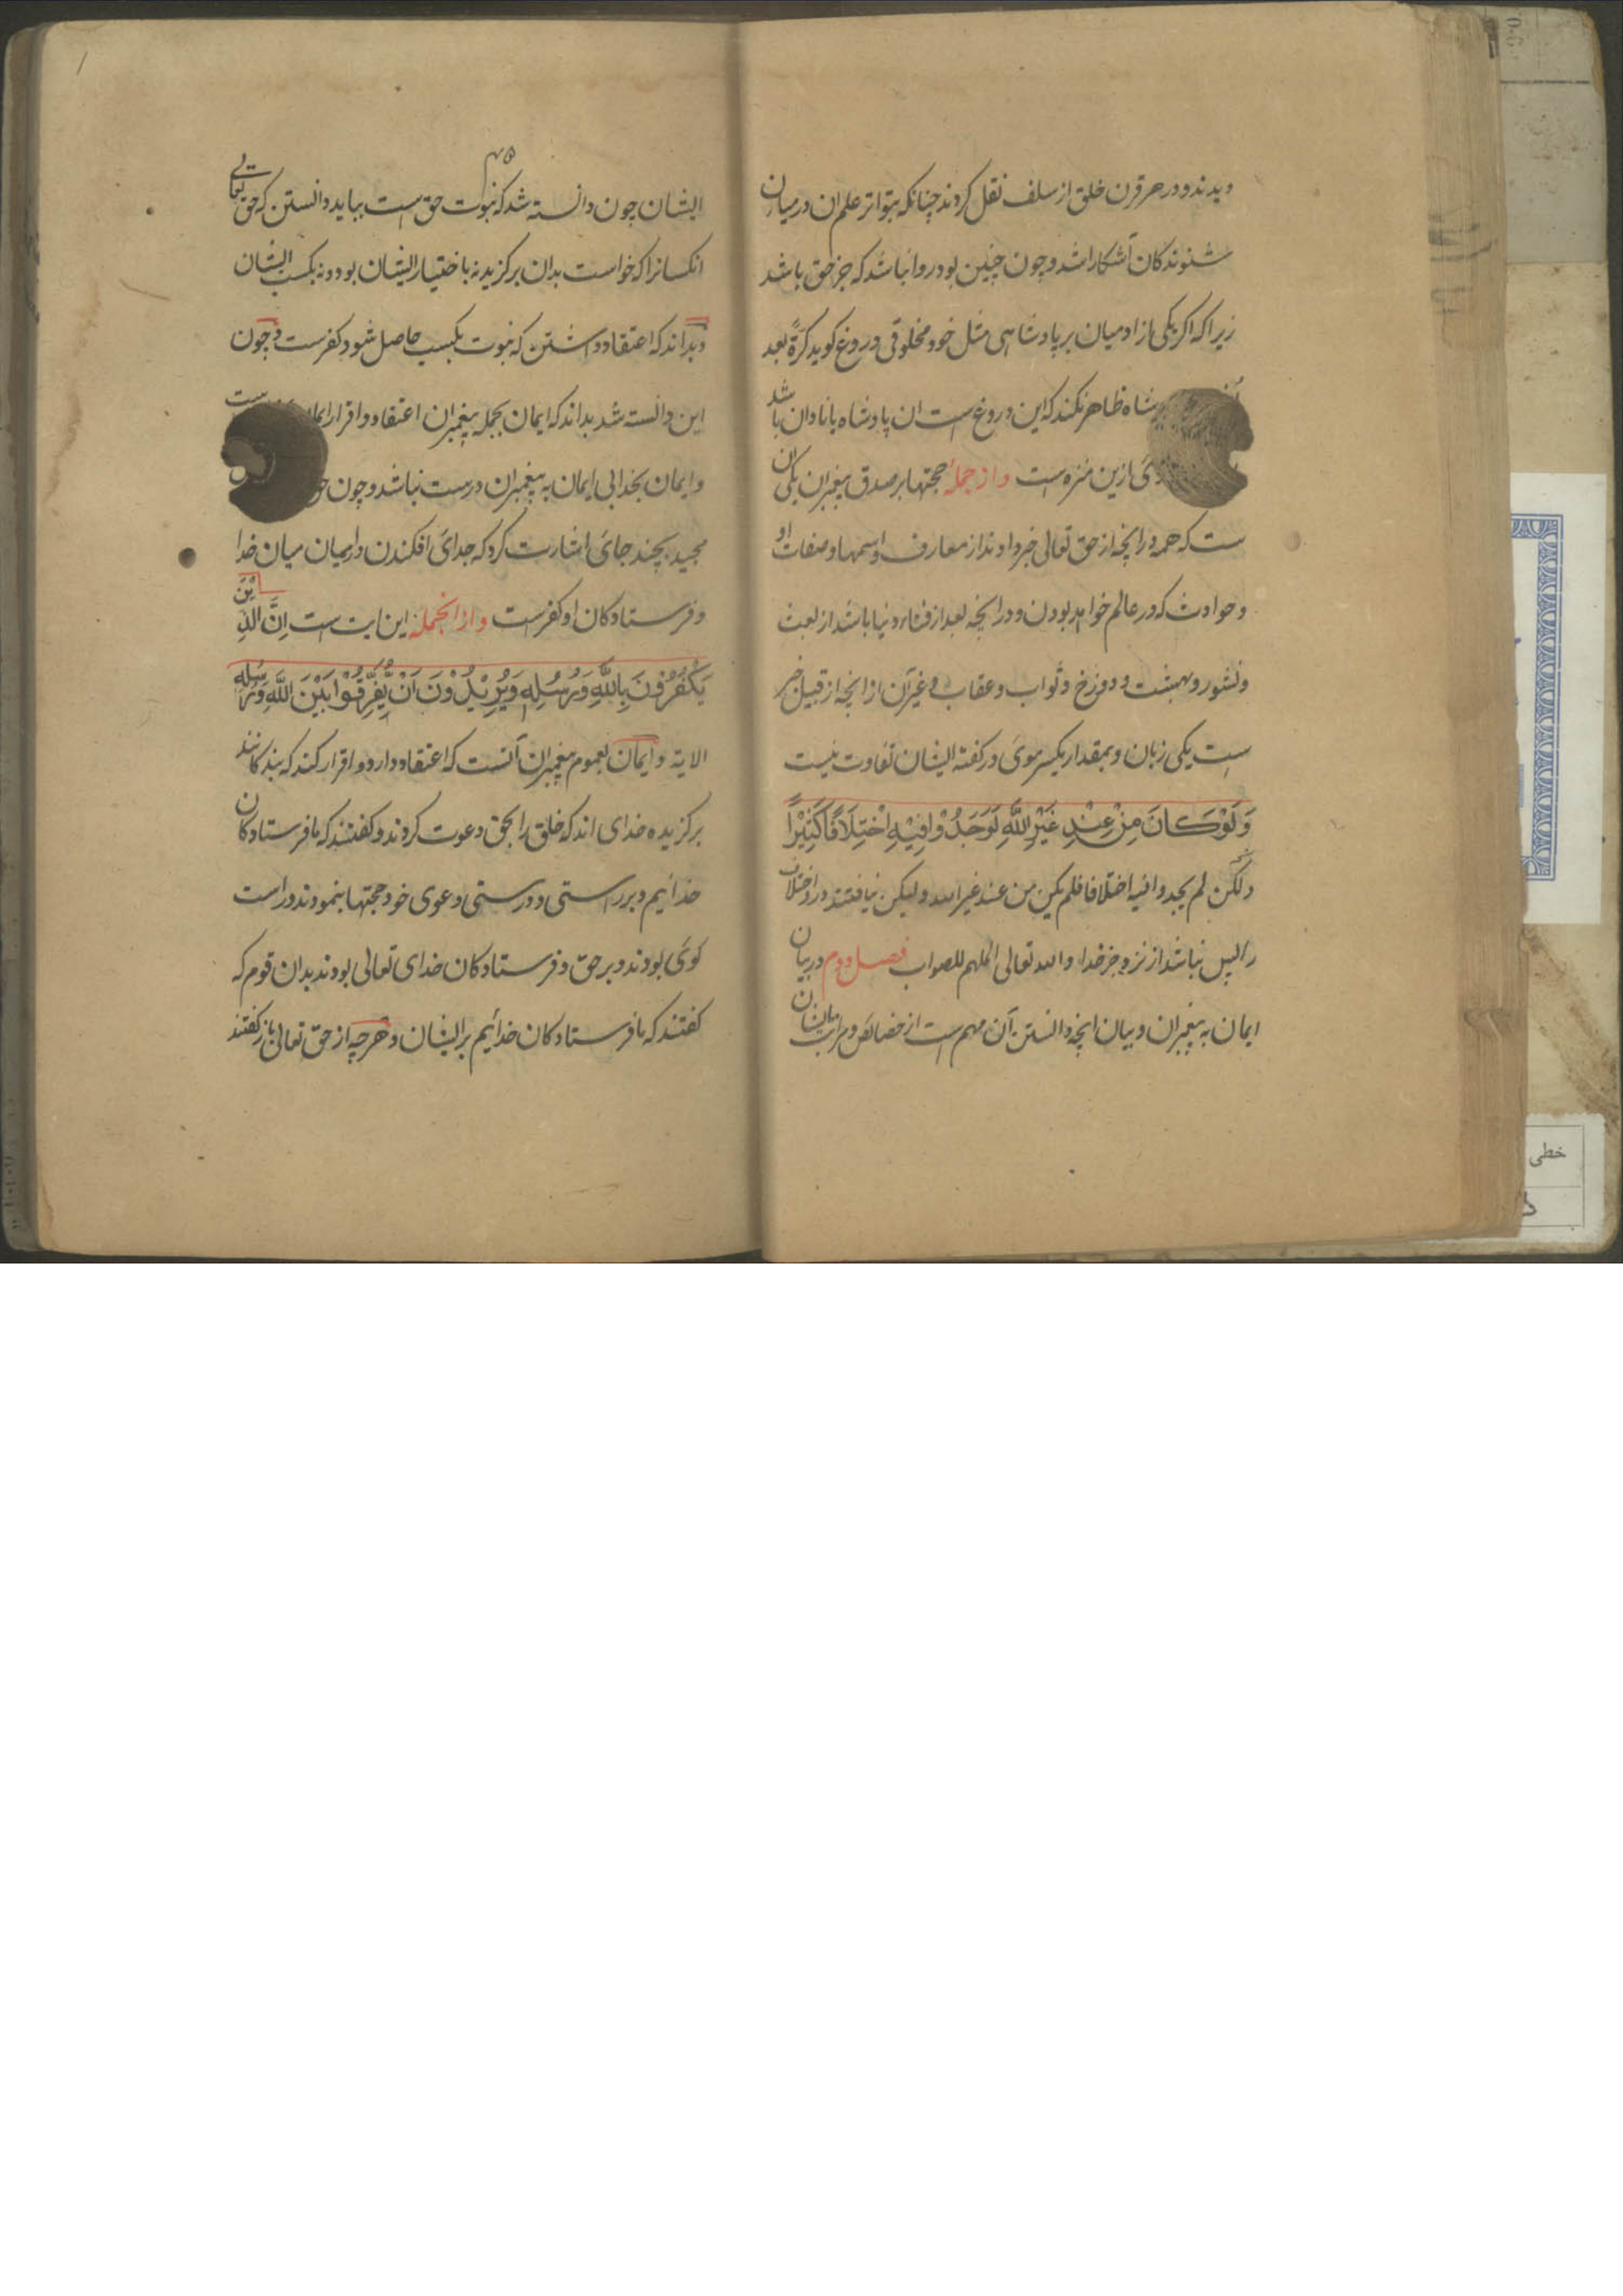 دیدند و در هر قرن خلق از سلف نقل کردند چنانکه بتواتر علم ان در میان
شنوندکان آشکارا شد و چون چنین بود روا نباشد که جز حق باشد
زیرا که اکر یکی از ادمیان بر پادشاهی مثل خود مخلوقی دروغ کوید کرّةً بعد
شاه ظاهر نکند که این دروغ است ان پادشاه یا نادان باشد
ازین منزه است و از جملهٔ حجتها بر صدق پیغمبران یکی ان
ست که همه در انچه از حق تعالی خبر داوند از معارف و اسمها و صفات او
و حوادث که در عالم خواهد بودن و در انچه بعد از فناء دنیا باشد از بعث
و نشور و بهشت و دوزخ و ثواب و عقاب و غیر آن از انچه از قبیل خبر
است یکی زبان و بمقدار یکسر موی در کفته ایشان تفاوت نیست
وَلَوْ كَانَ مِنْ عِنْدِ غَيْرِ اللَّهِ لَوَجَدُوْا فِيْهِ اخْتِلَافًا كَثِيْرًا
ولکن لم یجدوا فیه اختلافا فلم یکن من عند غیر الله ولیکن نیافتند درو اختلاف
را پس نباشد از نزد جز خدا والله تعالی الملهم للصواب فصل دوم در بیان
ایمان به پیغمبران و بیان انچه دانستن آن مهم است از خصائص و مراتب ایشان
۴۵
ایشان چون دانسته شد که نبوت حق است بباید دانستن که حق تعالی
انکسانرا که خواست بدان برکزید نه باختیار ایشان بود و نه بکسب ایشان
و بداند که اعتقاد داشتن که نبوت بکسب حاصل شود کفرست و چون
این دانسته شد بداند که ایمان بجمله پیغمبران اعتقاد و اقرار ست
و ایمان بخدا بی ایمان به پیغمبران درست نباشد و چون
مجید بچند جای اشارت کرد که جدائ افکندن در ایمان میان خدا
و فرستادکان او کفرست و از انجمله این ایت است اِنَّ الَّذِيْنَ
يَكْفُرُوْنَ بِاللَّهِ وَرُسُلِهٖ وَيُرِيْدُوْنَ اَنْ يُّفَرِّقُوْا بَيْنَ اللَّهِ وَرُسُلِهٖ
الایة و ایمان بعموم پیغمبران آنست که اعتقاد دارد و اقرار کند که بندکانند
برکزیده خدای اند که خلق را بحق دعوت کردند و کفتند که ما فرستادکان
خدائیم و بر راستی و درستی دعوی خود حجتها بنمودند و راست
کوی بودند و بر حق و فرستادکان خدای تعالی بودند بدان قوم که
کفتند که ما فرستادکان خدائیم بر ایشان و هرچه از حق تعالی باز کفتند
خطی